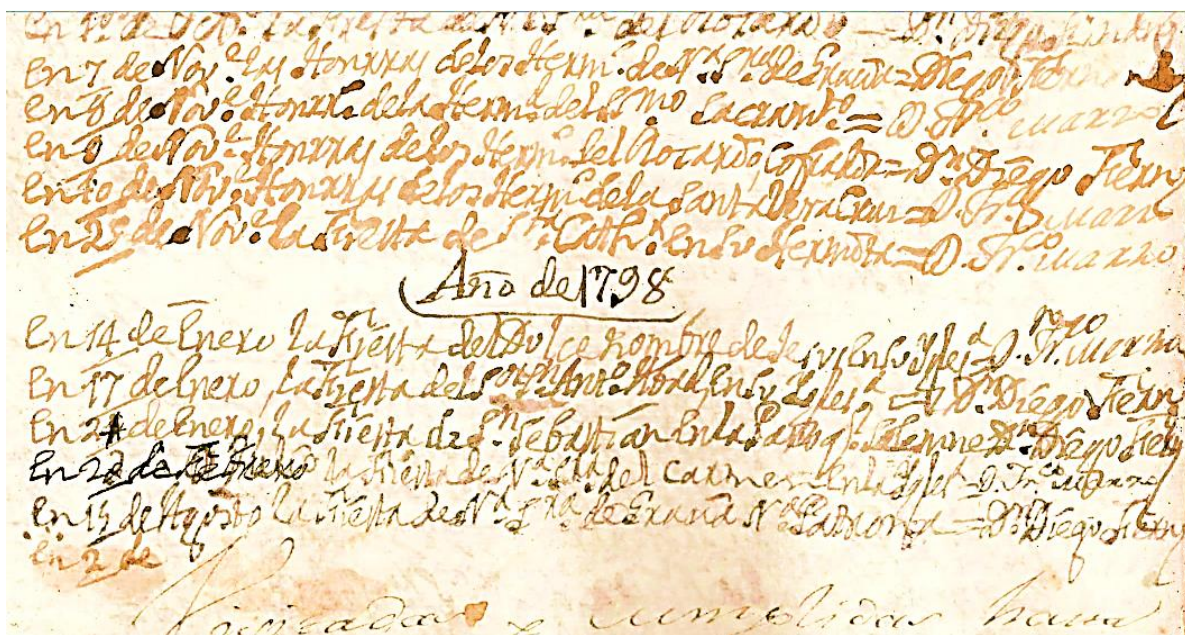 En 12 de Oct.e la Fiesta de N. S.ra del Rosario = D.n Diego
En 7 de Nov.e las Honrras de los Herm.s de N.a S.ra de Gracia = Diego Fierro
En 8 de Nov.e Honrr.s de la Herm.d del S.mo Sacram.to = D. Fr.co
En 9 de Nov.e Honrras de los Herm.s del Rosario, = D.n Diego Fierro
En 10 de Nov.e Honrras de los Herm.s de la Santa Vera Cruz = D. Fr.co
En 25 de Nov.e la Fiesta de S.ta Cath.a en su Hermita = D. Fr.co
Año de 1798
En 14 de Enero la Fiesta del Dulce nombre de Jesus en su Ygles.a D. Fr.co
En 17 de Enero, la Fiesta del S.or S.n Ant.o Abad en su Ygles.a = D.n Diego Fierro
En 21 de Enero, la Fiesta de S.n Sebastian en la Parroq.l solemne D.n Diego Fierro
En 22 de Febrero la Fiesta de N.a S.ra del Carmen en la Ygles.a = D. Fr.co
En 15 de Agosto la Fiesta de N.a S.ra de Gracia N.a Patrona = D.n Diego Fierro
En 2 de
y cumplidas